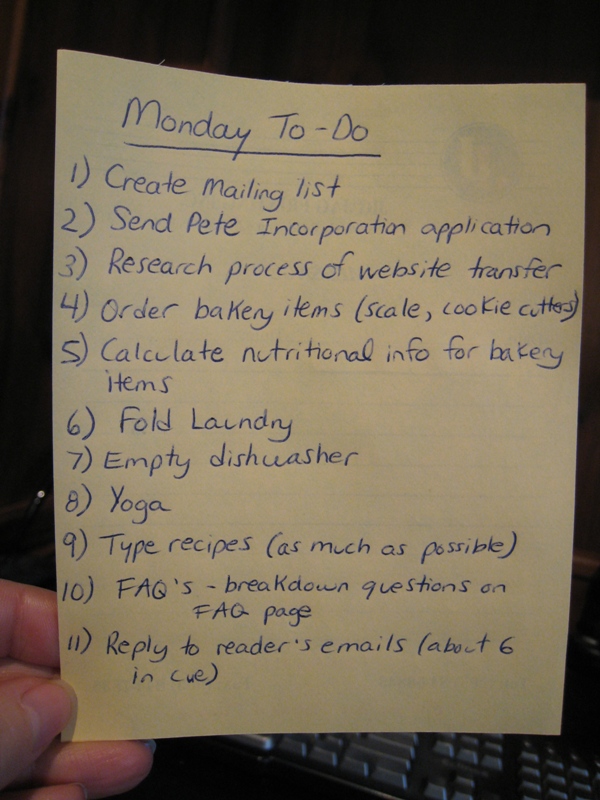 Monday To-Do
1) Create Mailing list
2) Send Pete Incorporation application
3) Research process of website transfer
4) Order bakery items (scale, cookie cutters)
5) Calculate nutritional info for bakery
items
6) Fold Laundry
7) Empty dishwasher
8) Yoga
9) Type recipes (as much as possible)
10) FAQ's - breakdown questions on
FAQ page
11) Reply to reader's emails (about 6
in cue)